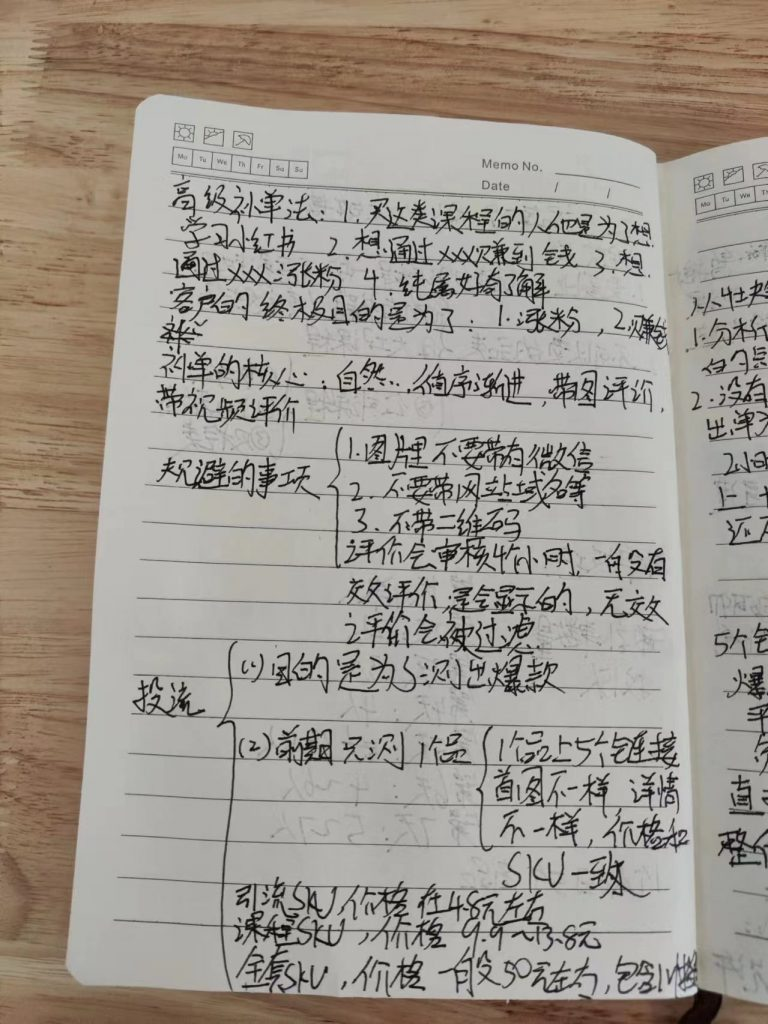 Mo Tu We Th Fr Sa Su
Memo No.
Date / /
高级补单法：1. 买这类课程的人他是为了想
学习小红书 2. 想通过xxx赚到钱 3. 想
通过xxx涨粉 4. 纯属好奇了解
客户的终极目的是为了：1. 涨粉，2. 赚钱
补单的核心：自然…，循序渐进，带图评价，
带视频评价
规避的事项
1. 图片里不要带有微信
2. 不要带网站域名等
3. 不带二维码
评价会审核4个小时，一般没有
效评价，是会显示的，无效
评价会被过滤
投流
(1) 目的是为了测出爆款
(2) 前期只测1个品
1个品上5个链接
首图不一样 详情
不一样，价格和
SKU一致
引流SKU，价格在4.8元左右
课程SKU，价格9.9~13.8元
全套SKU，价格一般50元左右，包含
Mo Tu We Th
1. 分析
2. 没有
出单
2小时
5个
爆
平
直
整个